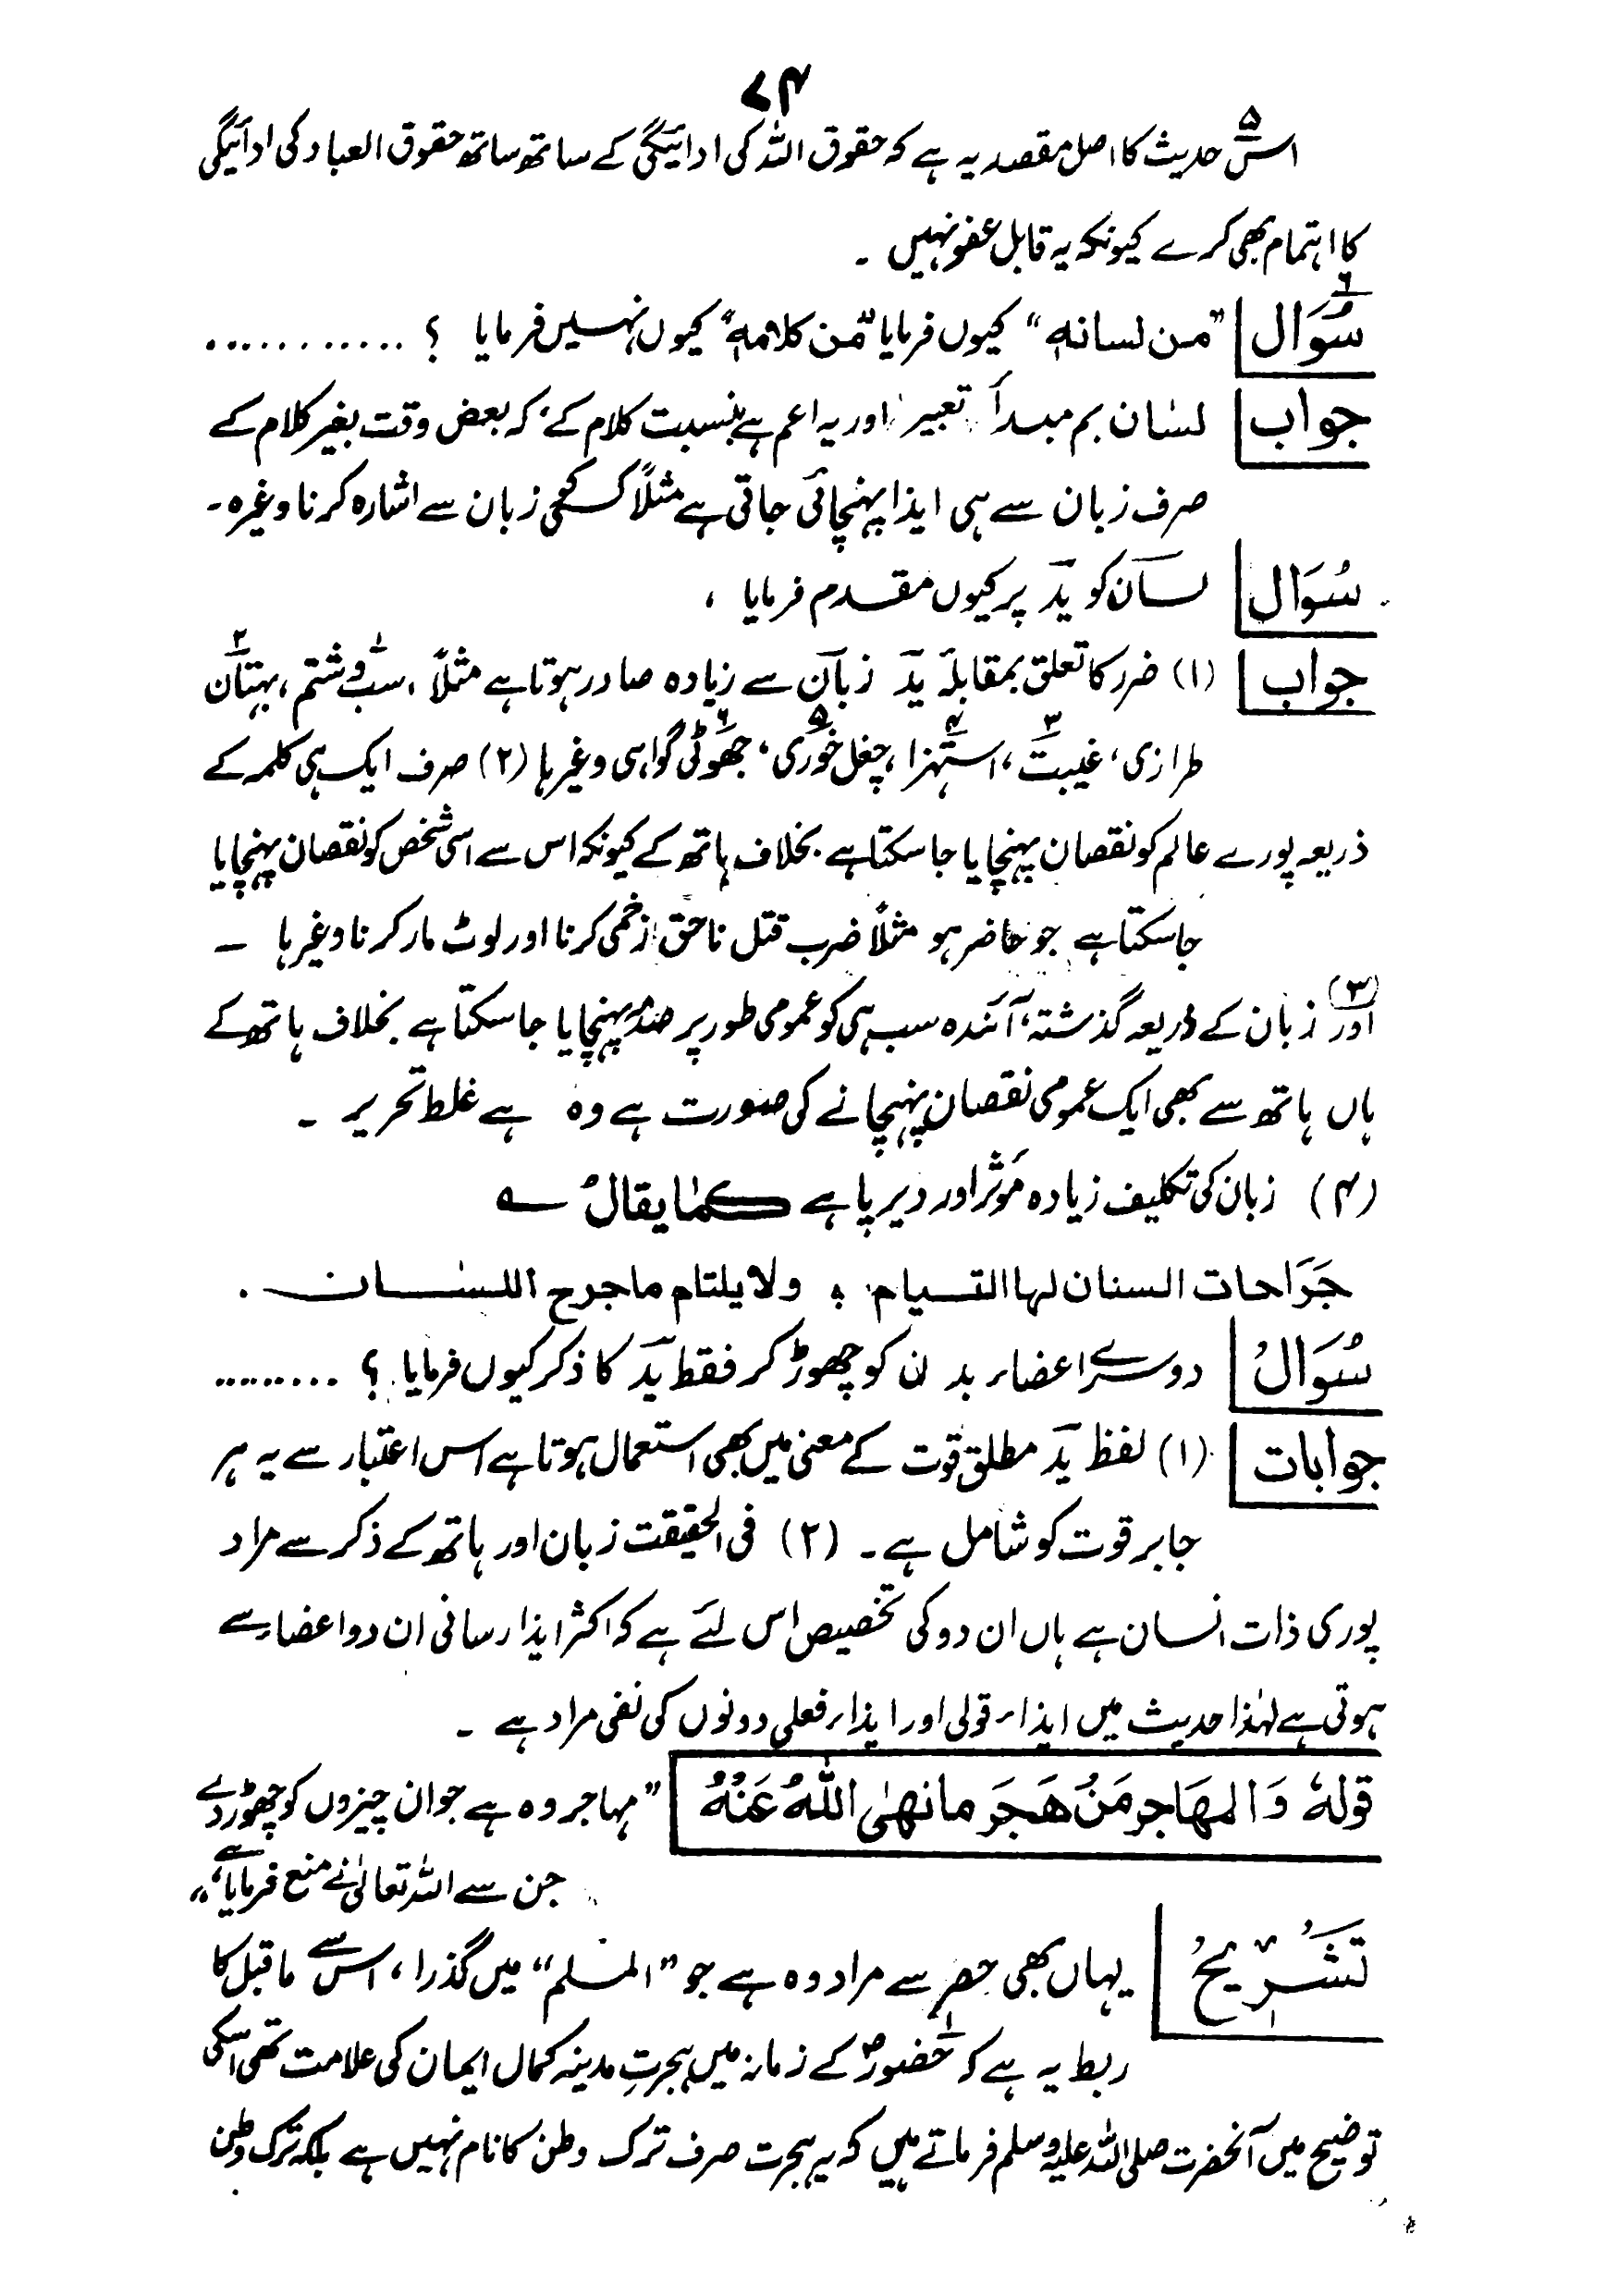 ۷۴
۵
اس حدیث کا اصل مقصد یہ ہے کہ حقوق اللہ کی ادائیگی کے ساتھ ساتھ حقوق العباد کی ادائیگی
کا اہتمام بھی کرے کیونکہ یہ قابل عفو نہیں ۔
سُوَال "من لسانہٖ" کیوں فرمایا "من کلامہٖ" کیوں نہیں فرمایا ؟ ............
جواب لسان ہم مبدأ تعبیر اور یہ اعم ہے بنسبت کلام کے، کہ بعض وقت بغیر کلام کے
صرف زبان سے ہی ایذا پہنچائی جاتی ہے مثلاً کسی زبان سے اشارہ کرنا وغیرہ۔
سُوَال لسان کو ید پر کیوں مقدم فرمایا ،
جواب (۱) ضرر کا تعلق بمقابلہ ید زبان سے زیادہ صادر ہوتا ہے مثلاً ، سب و شتم ، بہتان
طرازی ، غیبت ، استہزا ، چغل خوری ، جھوٹی گواہی وغیرہا (۲) صرف ایک ہی کلمہ کے
ذریعہ پورے عالم کو نقصان پہنچایا جا سکتا ہے بخلاف ہاتھ کے کیونکہ اس سے اسی شخص کو نقصان پہنچایا
جا سکتا ہے جو حاضر ہو مثلاً ضرب قتل ناحق زخمی کرنا اور لوٹ مار کرنا وغیرہا ــ
(۳) اور زبان کے ذریعہ گذشتہ، آئندہ سب ہی کو عمومی طور پر ضرر پہنچایا جا سکتا ہے بخلاف ہاتھ کے
ہاں ہاتھ سے بھی ایک عمومی نقصان پہنچانے کی صورت ہے وہ ہے غلط تحریر ۔
(۴) زبان کی تکلیف زیادہ مؤثر اور دیر پا ہے کما یقال ؎
جَرَاحات السنان لہا التیام ؛ ولا یلتام ما جرح اللسان .
سُوَالُ دوسرے اعضاء بدن کو چھوڑ کر فقط ید کا ذکر کیوں فرمایا ؟ .........
جوابات (۱) لفظ ید مطلق قوت کے معنی میں بھی استعمال ہوتا ہے اس اعتبار سے یہ ہر
جابر قوت کو شامل ہے ۔ (۲) فی الحقیقت زبان اور ہاتھ کے ذکر سے مراد
پوری ذات انسان ہے ہاں ان دو کی تخصیص اس لئے ہے کہ اکثر ایذا رسانی ان دو اعضاء سے
ہوتی ہے لہٰذا حدیث میں ایذاء قولی اور ایذاء فعلی دونوں کی نفی مراد ہے ۔
قولہٗ وَالمهَاجر مَنْ هَجَرَ ما نهىٰ اللّٰهُ عَنْهُ "مہاجر وہ ہے جو ان چیزوں کو چھوڑ دے
جن سے اللہ تعالیٰ نے منع فرمایا ہے"
تَشْرِیحُ یہاں بھی حصر سے مراد وہ ہے جو "المسلم" میں گذرا ، اس سے ماقبل کا
ربط یہ ہے کہ حضورؐ کے زمانہ میں ہجرتِ مدینہ کمال ایمان کی علامت تھی اسکی
توضیح میں آنحضرت صلی اللہ علیہ وسلم فرماتے ہیں کہ یہ ہجرت صرف ترک وطن کا نام نہیں ہے بلکہ ترک وطن